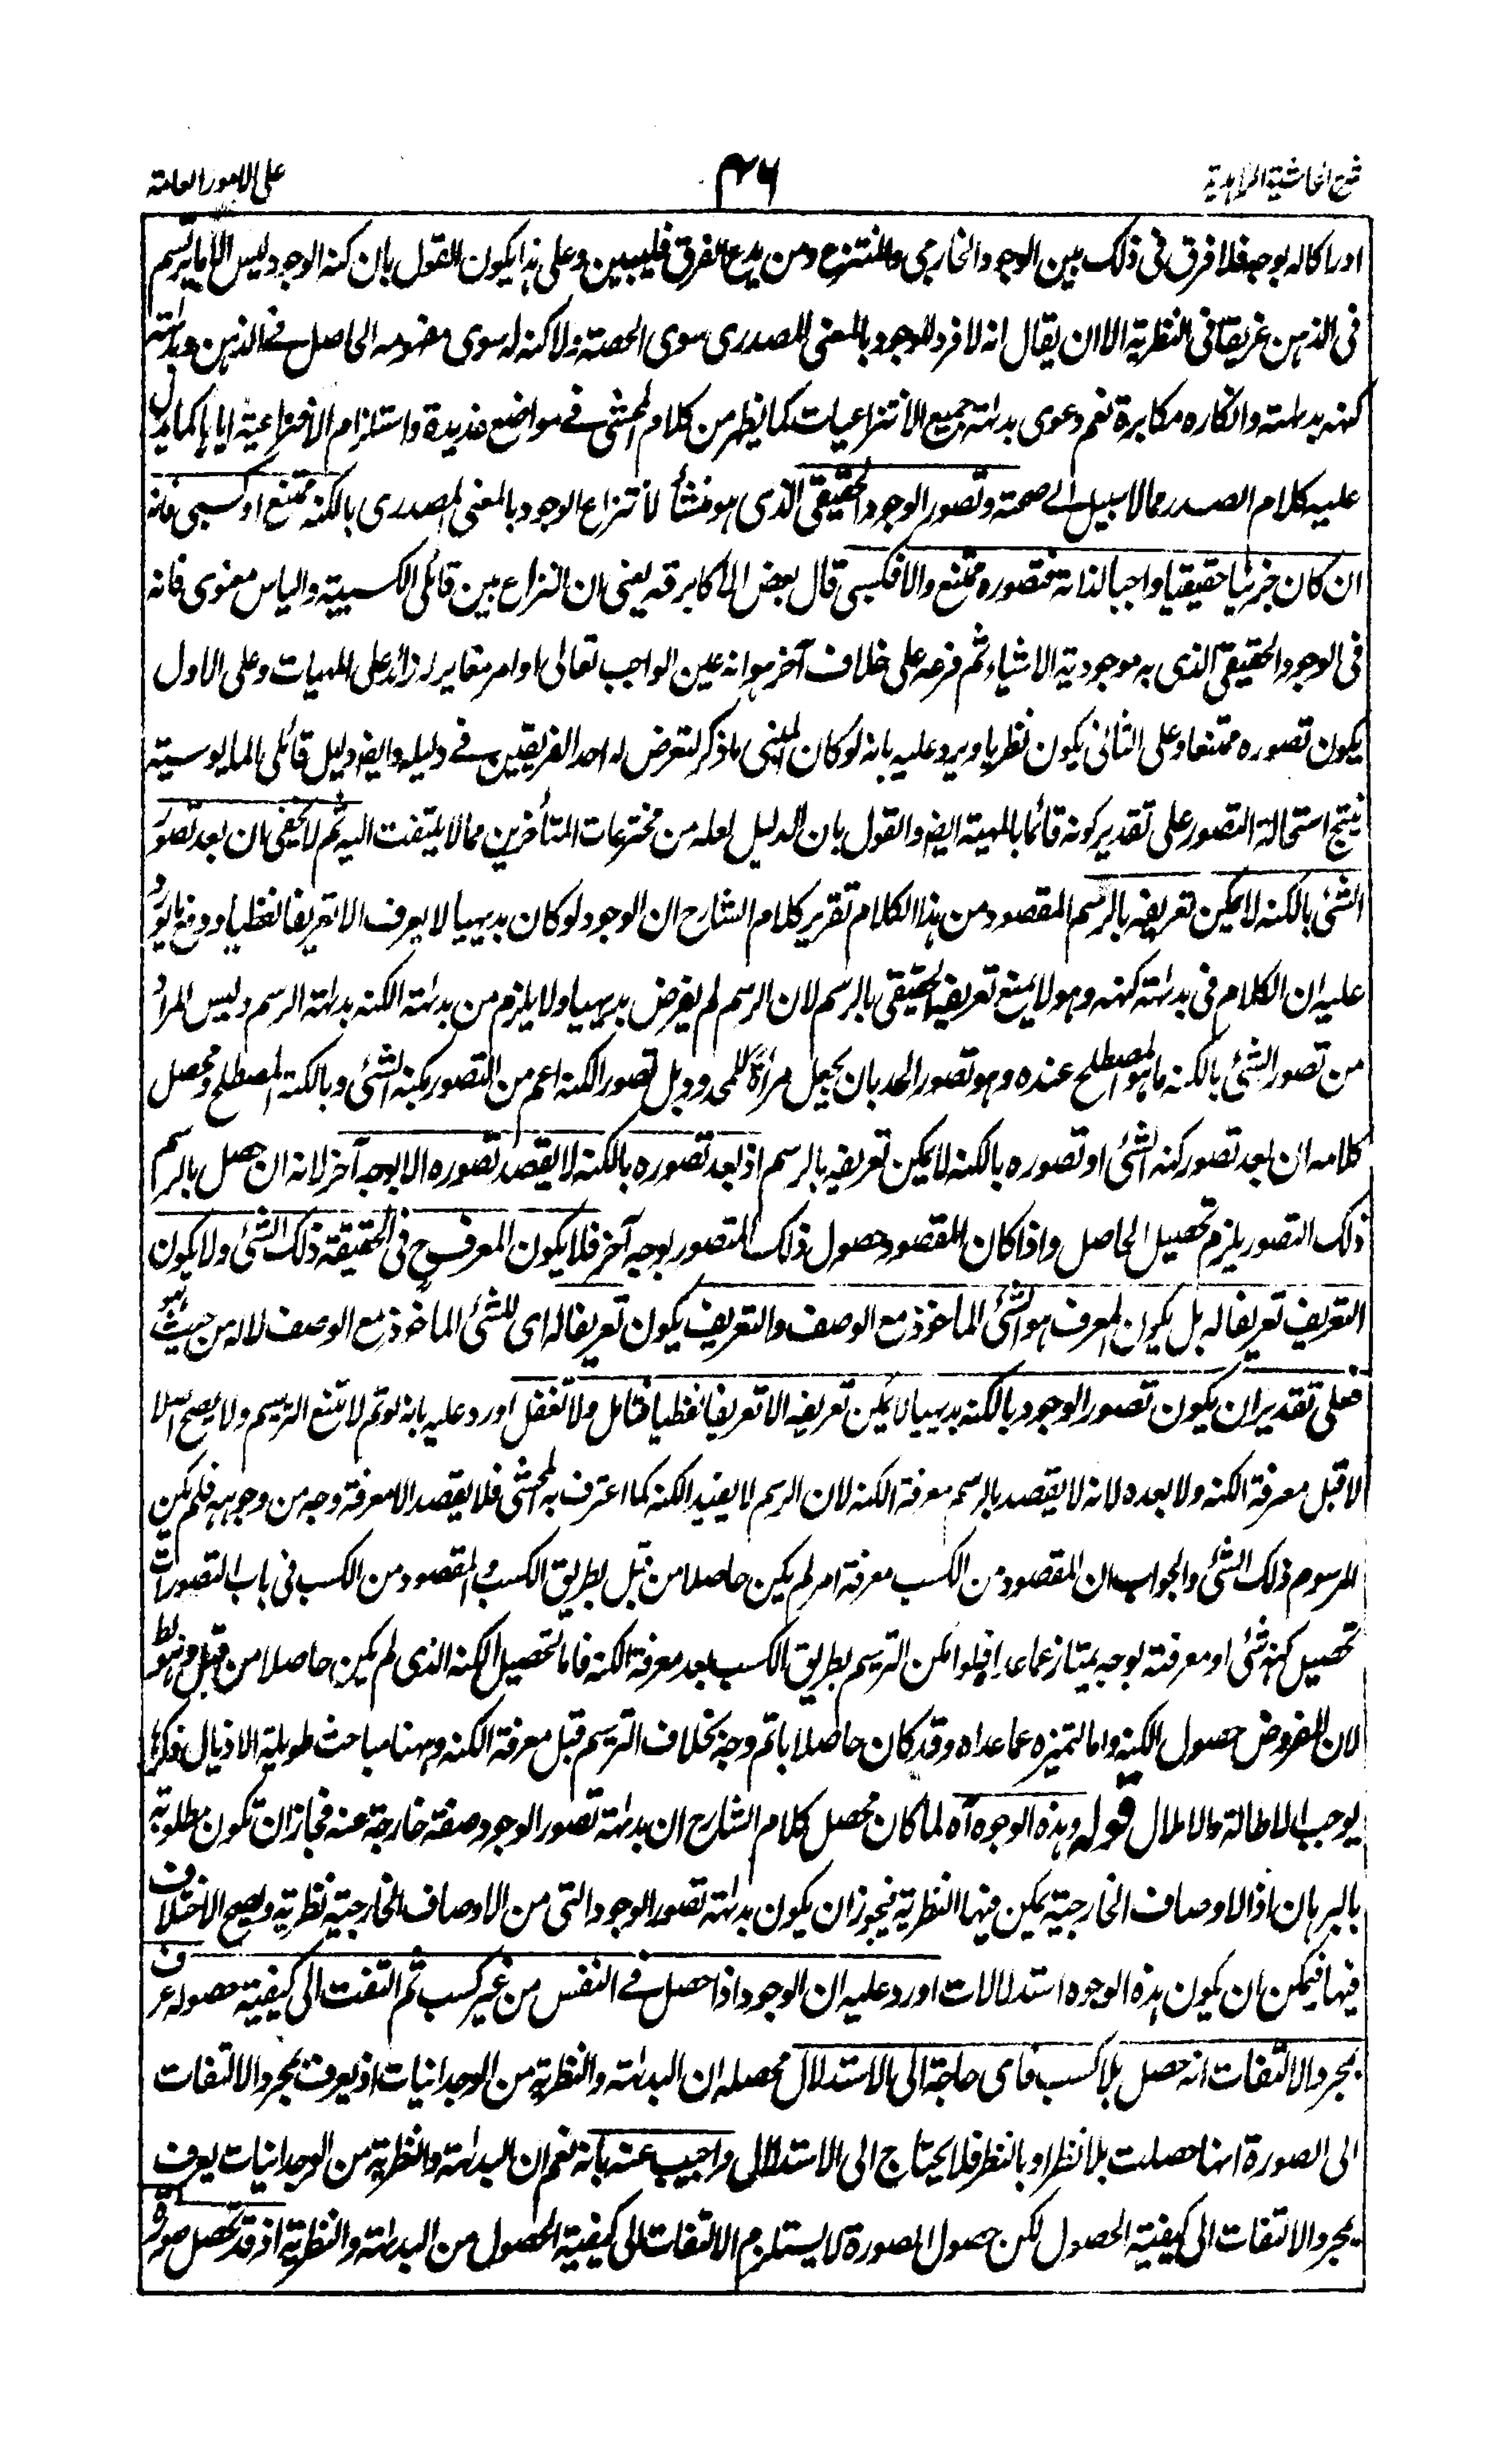 شرح الحاشية الزاهدية
٤٦
على الامور العامة
ادراكا له بوجه فلا فرق فى ذلك بين الوجود الخارجى والمنتزع ومن يدع الفرق فليبين وعلى هذا يكون القول بان كنه الوجود ليس الا ما يرتسم
فى الذهن غريقا فى النظرية الا ان يقال انه لا فرد للوجود بالمعنى المصدرى سوى الحصة ولا كنه له سوى مفهومه الحاصل فى الذهن وبداهته
كنهه بداهته وانكاره مكابرة نعم دعوى بداهة جميع الانتزاعيات كما يظهر من كلام المحشى فى مواضع عديدة واستلزام الانتزاعية اياها كما يدل
عليه كلام الصدر مما لا سبيل الى صحته وتصور الوجود الحقيقى الذى هو منشأ لانتزاع الوجود بالمعنى المصدرى بالكنه ممتنع او كسبى فانه
ان كان جزئيا حقيقيا واجبا لذاته فتصوره ممتنع والا فكسبى قال بعض الاكابر قه يعنى ان النزاع بين قائلى الكسبية والياس معنوى فانه
فى الوجود الحقيقى الذى به موجودية الاشياء ثم فرعه على خلاف آخر هو انه عين الواجب تعالى او امر مغاير له زائد على المهيات وعلى الاول
يكون تصوره ممتنعا وعلى الثانى يكون نظريا ويرد عليه بانه لو كان المبنى ما ذكر لتعرض له احد الفريقين فى دليله وايضا دليل قائلى المايوسية
ينتج استحالة التصور على تقدير كونه قائما بالمهية ايضا والقول بان الدليل لعله من مخترعات المتأخرين مما لا يلتفت اليه ثم لا يخفى ان بعد تصور
الشئ بالكنه لا يمكن تعريفه بالرسم المقصود من هذا الكلام تقرير كلام الشارح ان الوجود لو كان بديهيا لا يعرف الا تعريفا لفظيا ودفع ما يورد
عليه ان الكلام فى بداهة كنهه وهو لا يمنع تعريفه الحقيقى بالرسم لان الرسم لم يفرض بديهيا ولا يلزم من بداهة الكنه بداهة الرسم وليس المراد
من تصور الشئ بالكنه ما هو المصطلح عنده وهو تصور الحد بان يجعل مرآة للمحدود بل تصور الكنه اعم من التصور بكنه الشئ وبالكنه المصطلح ومحصل
كلامه ان بعد تصور كنه الشئ او تصوره بالكنه لا يمكن تعريفه بالرسم اذ بعد تصوره بالكنه لا يقصد تصوره الا بوجه آخر لانه ان حصل بالرسم
ذلك التصور يلزم تحصيل الحاصل واذا كان المقصود حصول ذلك المتصور بوجه آخر فلا يكون المعرف ح فى الحقيقة ذلك الشئ ولا يكون
التعريف تعريفا له بل يكون المعرف هو الشئ المأخوذ مع الوصف والتعريف يكون تعريفا له اى للشئ المأخوذ مع الوصف لا له من حيث هو
فعلى تقدير ان يكون تصور الوجود بالكنه بديهيا لا يمكن تعريفه الا تعريفا لفظيا فتامل ولا تغفل اورد عليه بانه لو تم لامتنع الترسيم ولا يصح اصلا
لا قبل معرفة الكنه ولا بعده لانه لا يقصد بالرسم معرفة الكنه لان الرسم لا يفيد الكنه كما اعترف به المحشى فلا يقصد الا معرفة وجه من وجوهه فلم يكن
المرسوم ذلك الشئ والجواب ان المقصود من الكسب معرفة امر لم يكن حاصلا من قبل بطريق الكسب والمقصود من الكسب فى باب التصورات
تحصيل كنه شئ او معرفته بوجه يمتاز عما عداه فلو امكن الترسيم بطريق الكسب بعد معرفة الكنه فاما لتحصيل الكنه الذى لم يكن حاصلا من قبل وهو غلط
لان المفروض حصول الكنه واما لتميزه عما عداه وقد كان حاصلا باتم وجه بخلاف الترسيم قبل معرفة الكنه وههنا مباحث طويلة الاذيال ذكرها
يوجب الاطالة والاملال قوله وهذه الوجوه آه لما كان محصل كلام الشارح ان بداهة تصور الوجود صفة خارجة عنه فجاز ان تكون مطلوبة
بالبرهان اذ الاوصاف الخارجية يمكن فيها النظرية فيجوز ان يكون بداهة تصور الوجود التى من الاوصاف الخارجية نظرية ويصح الاختلاف
فيها فيمكن ان يكون هذه الوجوه استدلالات اورد عليه ان الوجود اذا حصل فى النفس من غير كسب ثم التفت الى كيفية حصوله عرف
بمجرد الالتفات انه حصل بلا كسب فاى حاجة الى الاستدلال محصله ان البداهة والنظرية من الوجدانيات اذ يعرف بمجرد الالتفات
الى الصورة انها حصلت بلا نظر او بالنظر فلا يحتاج الى الاستدلال واجيب عنه بانه نعم ان البداهة والنظرية من الوجدانيات يعرف
بمجرد الالتفات الى كيفية الحصول لكن حصول الصورة لا يستلزم الالتفات الى كيفية الحصول من البداهة والنظرية اذ قد تحصل صورة